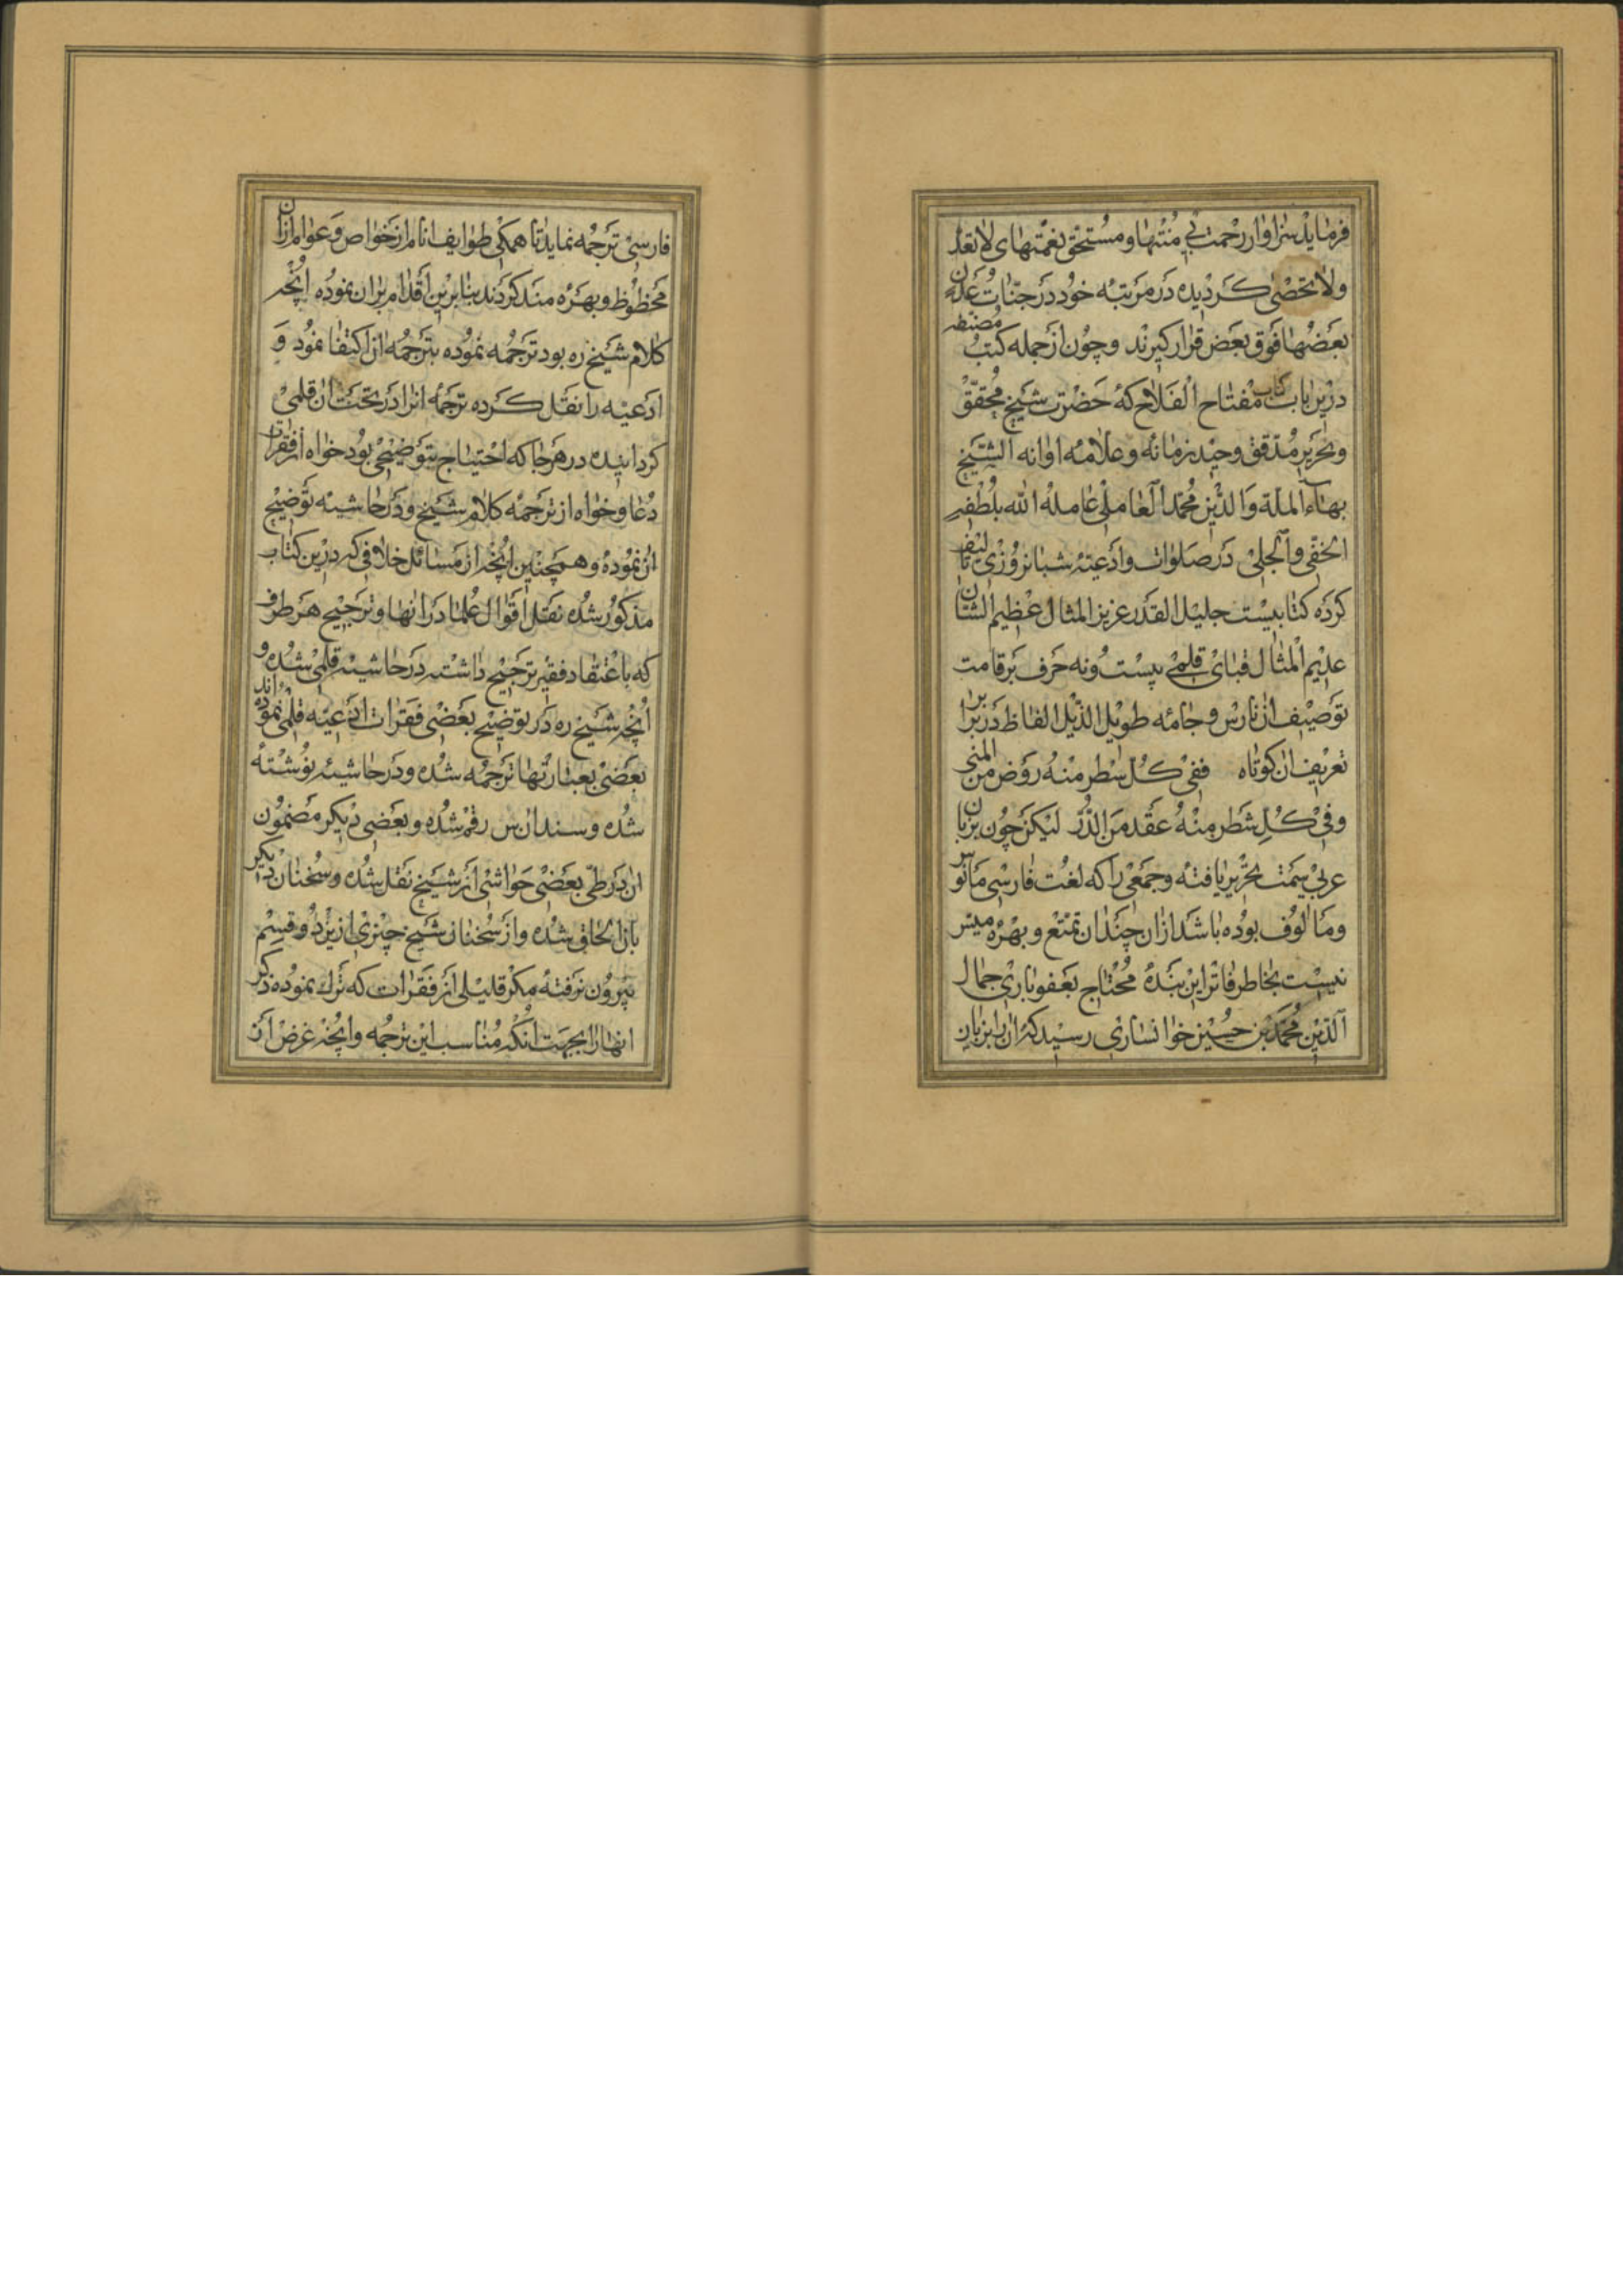 فرماید سزاوار رحمت بی منتها و مستحق نعمتهای لا تعد
ولا تحصی کردیده در مرتبه خود در جنات عدن
بعضها فوق بعض قرار کیرند و چون از جمله کتب مصنفه
درین باب کتاب مفتاح الفلاح که حضرت شیخ محقق
و نحریر مدقق وحید زمانه و علامه اوانه الشیخ
بهاء الملة والدین محمد العاملی عامله الله بلطفه
الخفی والجلی در صلوات و ادعیه شبانروزی تالیف
کرده کتابیست جلیل القدر عزیز المثال عظیم الشان
عدیم المثال قبای قلمی بیست ونه حرف بر قامت
توصیف ان نارس و جامه طویل الذیل الفاظ در برابر
تعریف ان کوتاه ففی کل سطر منه روض من المنی
وفی کل شطر منه عقد من الدرر لیکن چون بزبان
عربی سمت تحریر یافته و جمعی را که لغت فارسی مانوس
و مالوف بوده باشد ازان چندان تمتع و بهره میسر
نیست بخاطر فاتر این بنده محتاج بعفو باری جمال
الدین محمد بن حسین خوانساری رسید که ان را بزبان
فارسی ترجمه نماید تا همکی طوایف انام از خواص و عوام ازان
محظوظ و بهره مند کردند بنابرین اقدام بران نموده انچه
کلام شیخ ره بود ترجمه نموده بترجمه ان اکتفا نمود و
ادعیه را نقل کرده ترجمه انرا در تحت ان قلمی
کردانیده در هر جا که احتیاج بتوضیحی بود خواه از فقرات
دعا و خواه از ترجمه کلام شیخ و در حاشیه توضیح
ان نموده و همچنین انچه از مسائل خلافی که درین کتاب
مذکور شده نقل اقوال علما در انها و ترجیح هر طرف
که باعتقاد فقیر ترجیح داشته در حاشیه قلمی شده و
انچه شیخ ره در توضیح بعضی فقرات ادعیه قلمی نموده اند
بعضی بعبارتها ترجمه شده و در حاشیه نوشته
شده و سند ان س رقم شده و بعضی دیکر مضمون
ان در طی بعضی حواشی از شیخ نقل شده و سخنان دیکر
بان الحاق شده و از سخنان شیخ چیزی ازین دو قسم
بیرون نرفته مکر قلیلی از فقرات که ترک نموده ذکر
انها را بجهت انکه مناسب این ترجمه و انچه غرض از